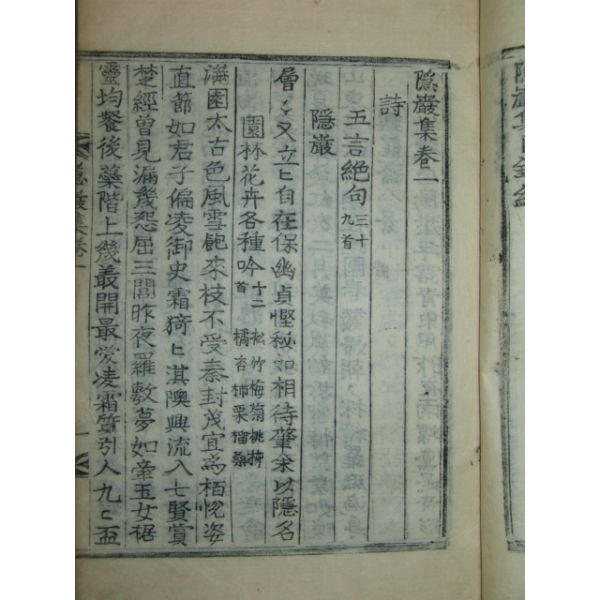 隱巖集目錄終
隱巖集卷一
詩
五言絶句 三十九首
隱巖
層〻又立〻自在保幽貞慳秘如相待肇余以隱名
園林花卉各種吟 十二首 松竹梅菊桃 橘杏柿栗榴桑
滿園太古色風雪飽來枝不受秦封茂宜爲栢悅姿
直節如君子偏凌御史霜猗〻淇隩興流入七賢賞
楚經曾見漏幾怨屈三閭昨夜羅敷夢如牽玉女裾
靈均餐後藥階上幾叢開最愛凌霜質引人九〻盃
隱巖集卷一
一